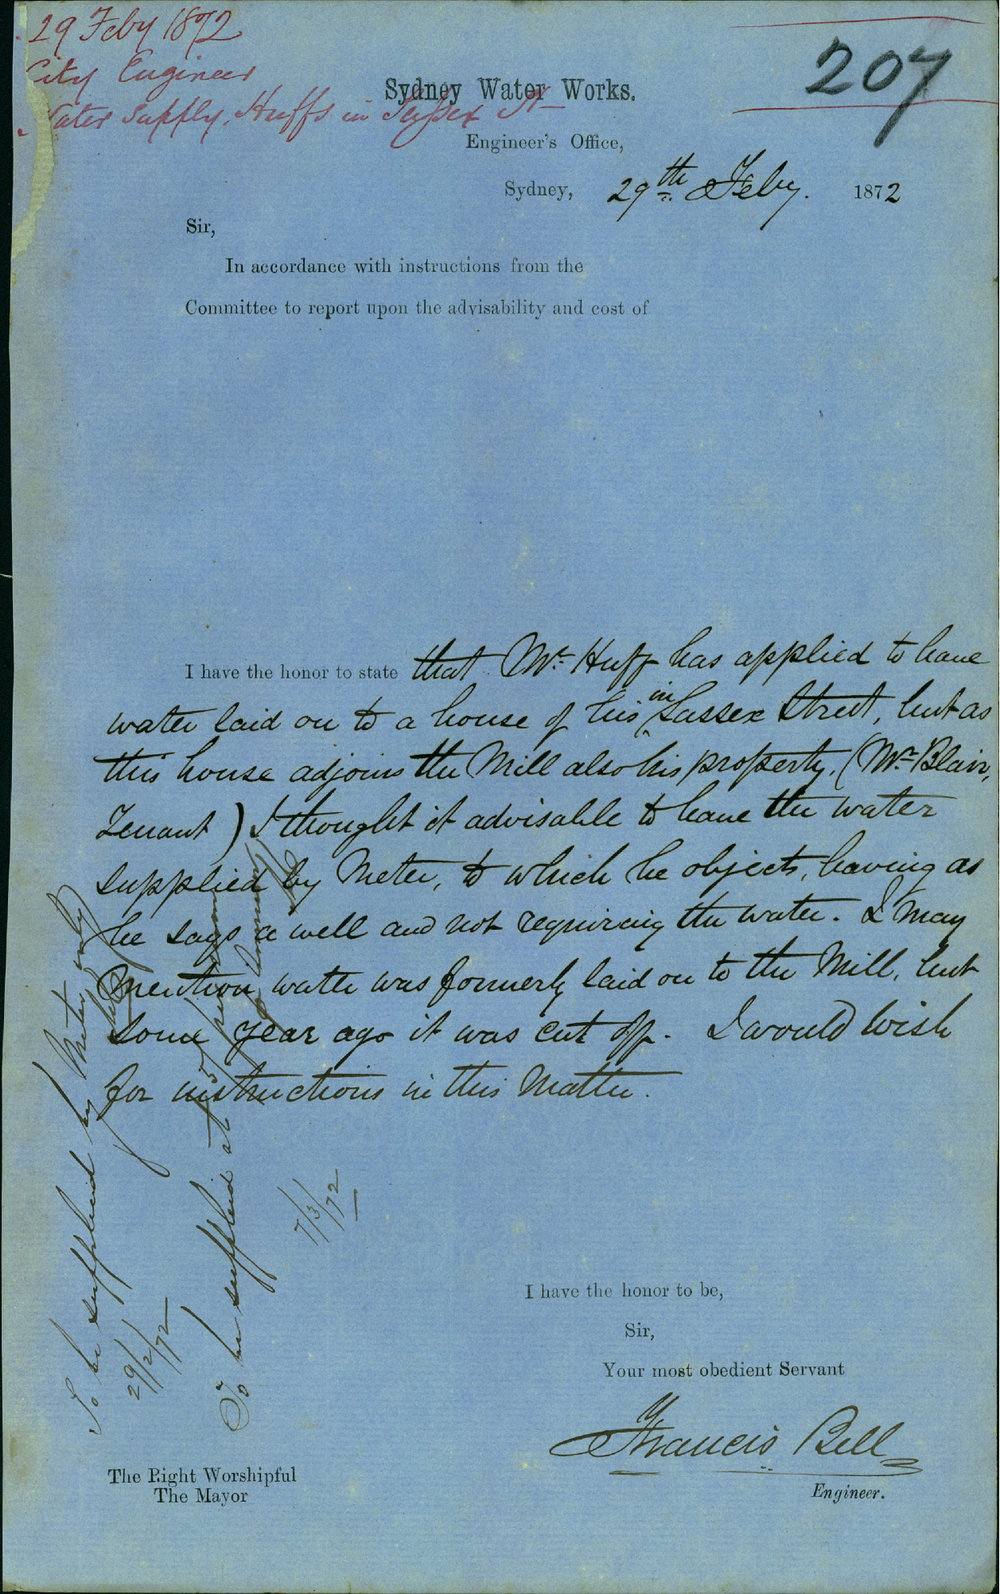 29 Feby 1872
City Engineer
Water Supply, Huffs in Sussex St
207
Sydney Water Works.
Engineer's Office,
Sydney, 29th Feby. 1872
Sir,
In accordance with instructions from the
Committee to report upon the advisability and cost of
I have the honor to state that Mr. Huff has applied to have
water laid on to a house of his in Sussex Street, but as
this house adjoins the Mill also his property, (Mr. Blair,
Tenant) I thought it advisable to have the water
supplied by Meter, to which he objects, having as
he says a well and not requiring the water. I may
mention water was formerly laid on to the Mill, but
some year ago it was cut off. I would wish
for instructions in this Matter.
To be supplied by Meter only
29/2/72
To be supplied at £5 per annum
7/3/72
I have the honor to be,
Sir,
Your most obedient Servant
Francis Bell
Engineer.
The Right Worshipful
The Mayor